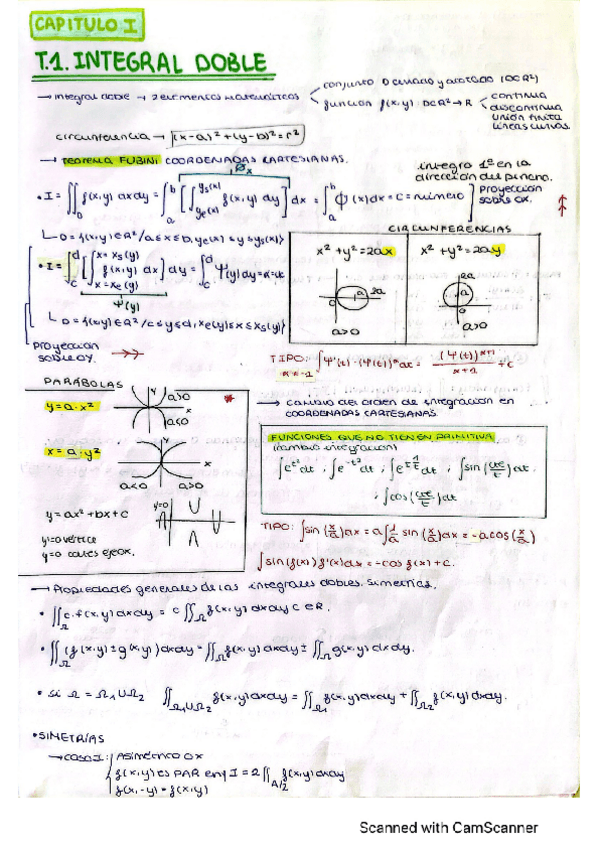 CAPITULO I
T.1. INTEGRAL DOBLE
→ integral doble → 2 elementos matemáticos
conjunto D cerrado y acotado (D⊂R²)
función f(x,y): D⊂R² → R
continua
discontinua
unión finita
líneas curvas.
circunferencia → (x-a)²+(y-b)²=r²
→ TEOREMA FUBINI COORDENADAS CARTESIANAS.
integro 1º en la
dirección del
• I = ∬_D f(x,y) dxdy = ∫_a^b [∫_{ye(x)}^{ys(x)} f(x,y) dy] dx = ∫_a^b ϕ(x)dx = C = número
Proyección
sobre OX.
D = {(x,y)∈R²/a≤x≤b, ye(x)≤y≤ys(x)}
• I = ∫_c^d [∫_{x=xe(y)}^{x=xs(y)} f(x,y) dx] dy = ∫_c^d Ψ(y)dy
Ψ(y)
D = {(x,y)∈R²/c≤y≤d, xe(y)≤x≤xs(y)}
Proyección
sobre OY.
CIRCUNFERENCIAS
x²+y²=2ax
x²+y²=2ay
a 2a
0
a>0
2a
a
0
a>0
TIPO:
+ C
PARÁBOLAS
y=a·x²
y
a>0
x
a<0
x=a·y²
y
x
a<0 a>0
y=ax²+bx+c
y=0
y'=0 vértice
y=0 cortes eje OX.
→ cambio del orden de integración en
COORDENADAS CARTESIANAS.
FUNCIONES QUE NO TIENEN PRIMITIVA
(cambio integración)
TIPO: ∫sin(x/a)dx = a∫1/a sin(x/a)dx = -a cos(x/a)
∫sin(f(x))f'(x)dx = -cos f(x)+C.
→ Propiedades generales de las integrales dobles. Simetrías.
• ∬_Ω c·f(x,y)dxdy = c∬_Ω f(x,y)dxdy c∈R.
• ∬_Ω (f(x,y)±g(x,y))dxdy = ∬_Ω f(x,y)dxdy ± ∬_Ω g(x,y)dxdy.
• Si Ω = Ω1UΩ2 ∬_{Ω1UΩ2} f(x,y)dxdy = ∬_Ω1 f(x,y)dxdy + ∬_Ω2 f(x,y)dxdy.
• SIMETRÍAS
→ CASO I: A simétrico OX
f(x,y) es PAR en y I = 2∬_{A/2} f(x,y)dxdy
f(x,-y) = f(x,y)
Scanned with CamScanner